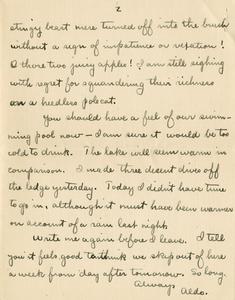 2
stingy beast were turned off into the brush
without a sign of impatience or vexation!
O those two juicy apples! I am still sighing
with regret for squandering their richness
on a heedless polecat.
You should have a feel of our swim-
ming pool now – I am sure it would be too
cold to drink. The lake will seem warm in
comparison. I made three descent dives off
the ledge yesterday. Today I didn't have time
to go in, although it must have been warmer
on account of a rain last night.
Write me again before I leave. I tell
you it feels good to think we skip out of here
a week from day after tomorrow. So long.
Always
Aldo.